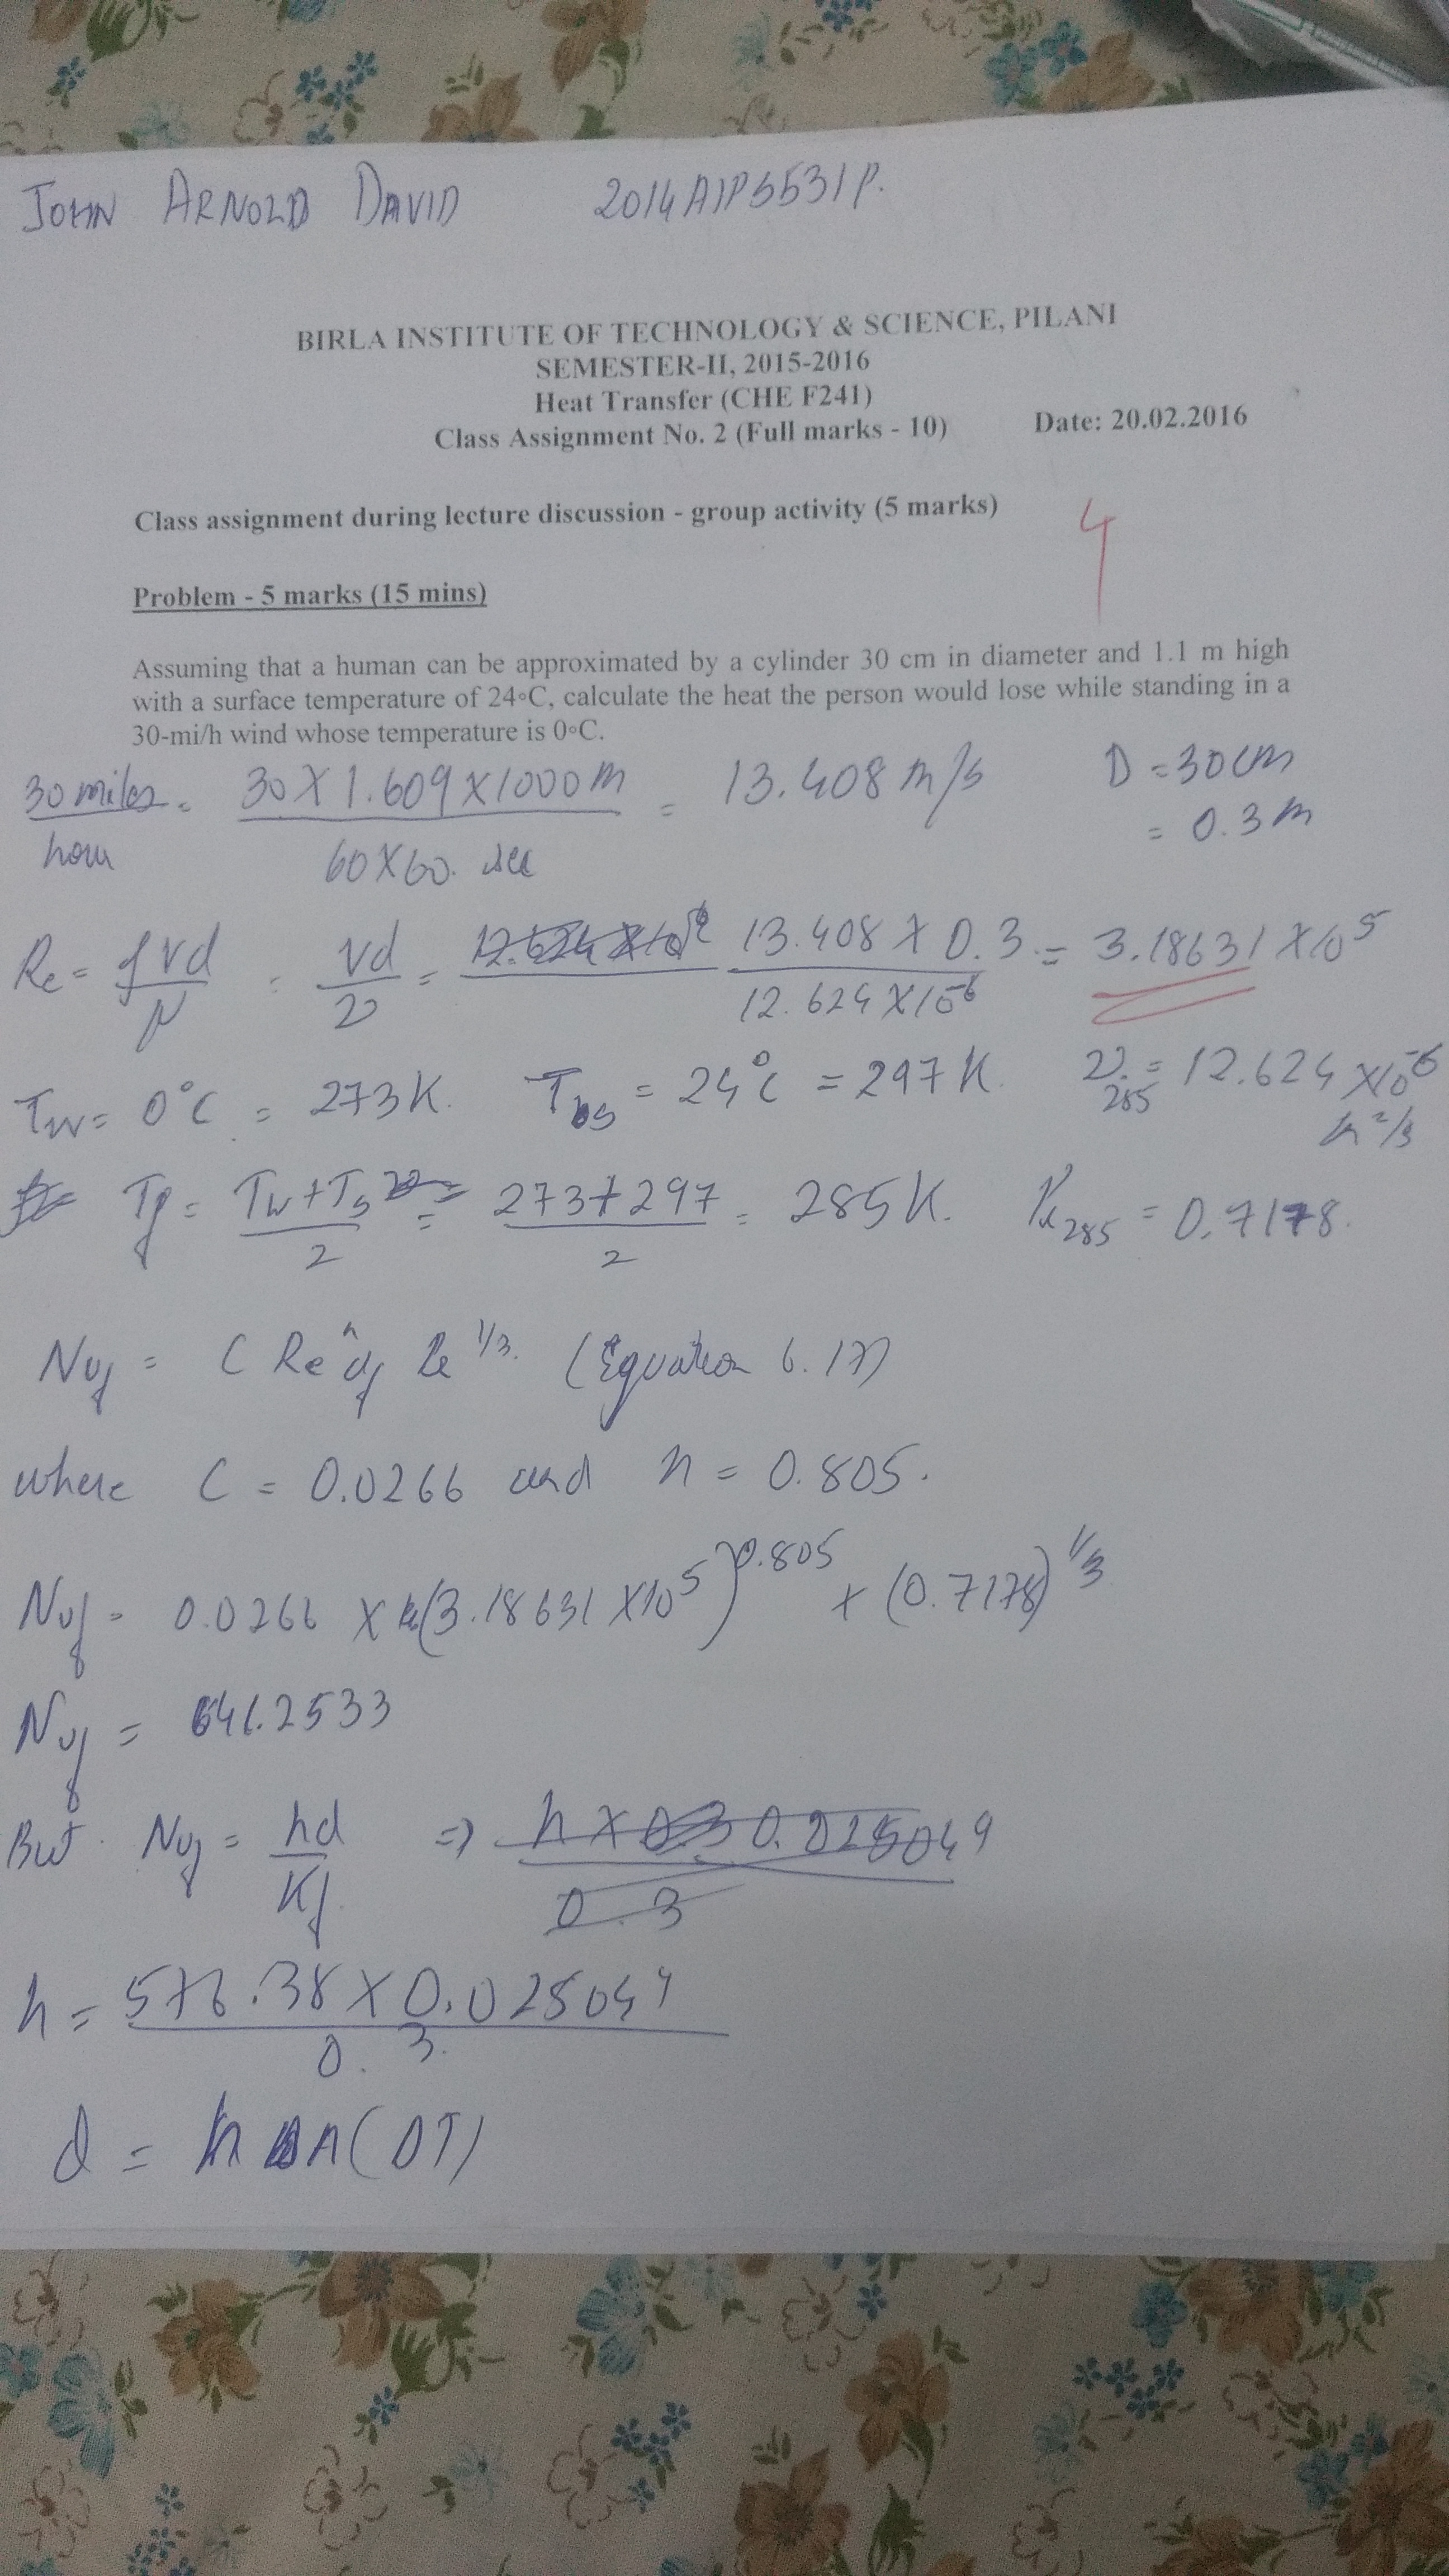 JOHN ARNOLD DAVID 2014A1PS531P.
BIRLA INSTITUTE OF TECHNOLOGY & SCIENCE, PILANI
SEMESTER-II, 2015-2016
Heat Transfer (CHE F241)
Class Assignment No. 2 (Full marks - 10) Date: 20.02.2016
Class assignment during lecture discussion - group activity (5 marks)
4
Problem - 5 marks (15 mins)
Assuming that a human can be approximated by a cylinder 30 cm in diameter and 1.1 m high
with a surface temperature of 24°C, calculate the heat the person would lose while standing in a
30-mi/h wind whose temperature is 0°C.
30 miles/hour = 30 X 1.609 X 1000 m / 60 X 60. sec = 13.408 m/s D = 30 cm
= 0.3 m
Re = ρvd/μ = vd/ν = 13.408 X 0.3 / 12.624 X 10^-6 = 3.18631 X 10^5
Tw = 0°C = 273K. Ts = 24°C = 297K. ν285 = 12.624 X 10^-6
m²/s
Tf = Tw + Ts / 2 = 273 + 297 / 2 = 285K. Pr285 = 0.7178.
Nuf = C Re^n df Pr^1/3. (Equation 6.17)
where C = 0.0266 and n = 0.805.
Nuf = 0.0266 X (3.18631 X 10^5)^0.805 X (0.7178)^1/3
Nuf = 641.2533
But Nuf = hd/Kf ⇒ h X 0.025049 / 0.3
h = 576.38 X 0.025049 / 0.3.
Q = h A (ΔT)